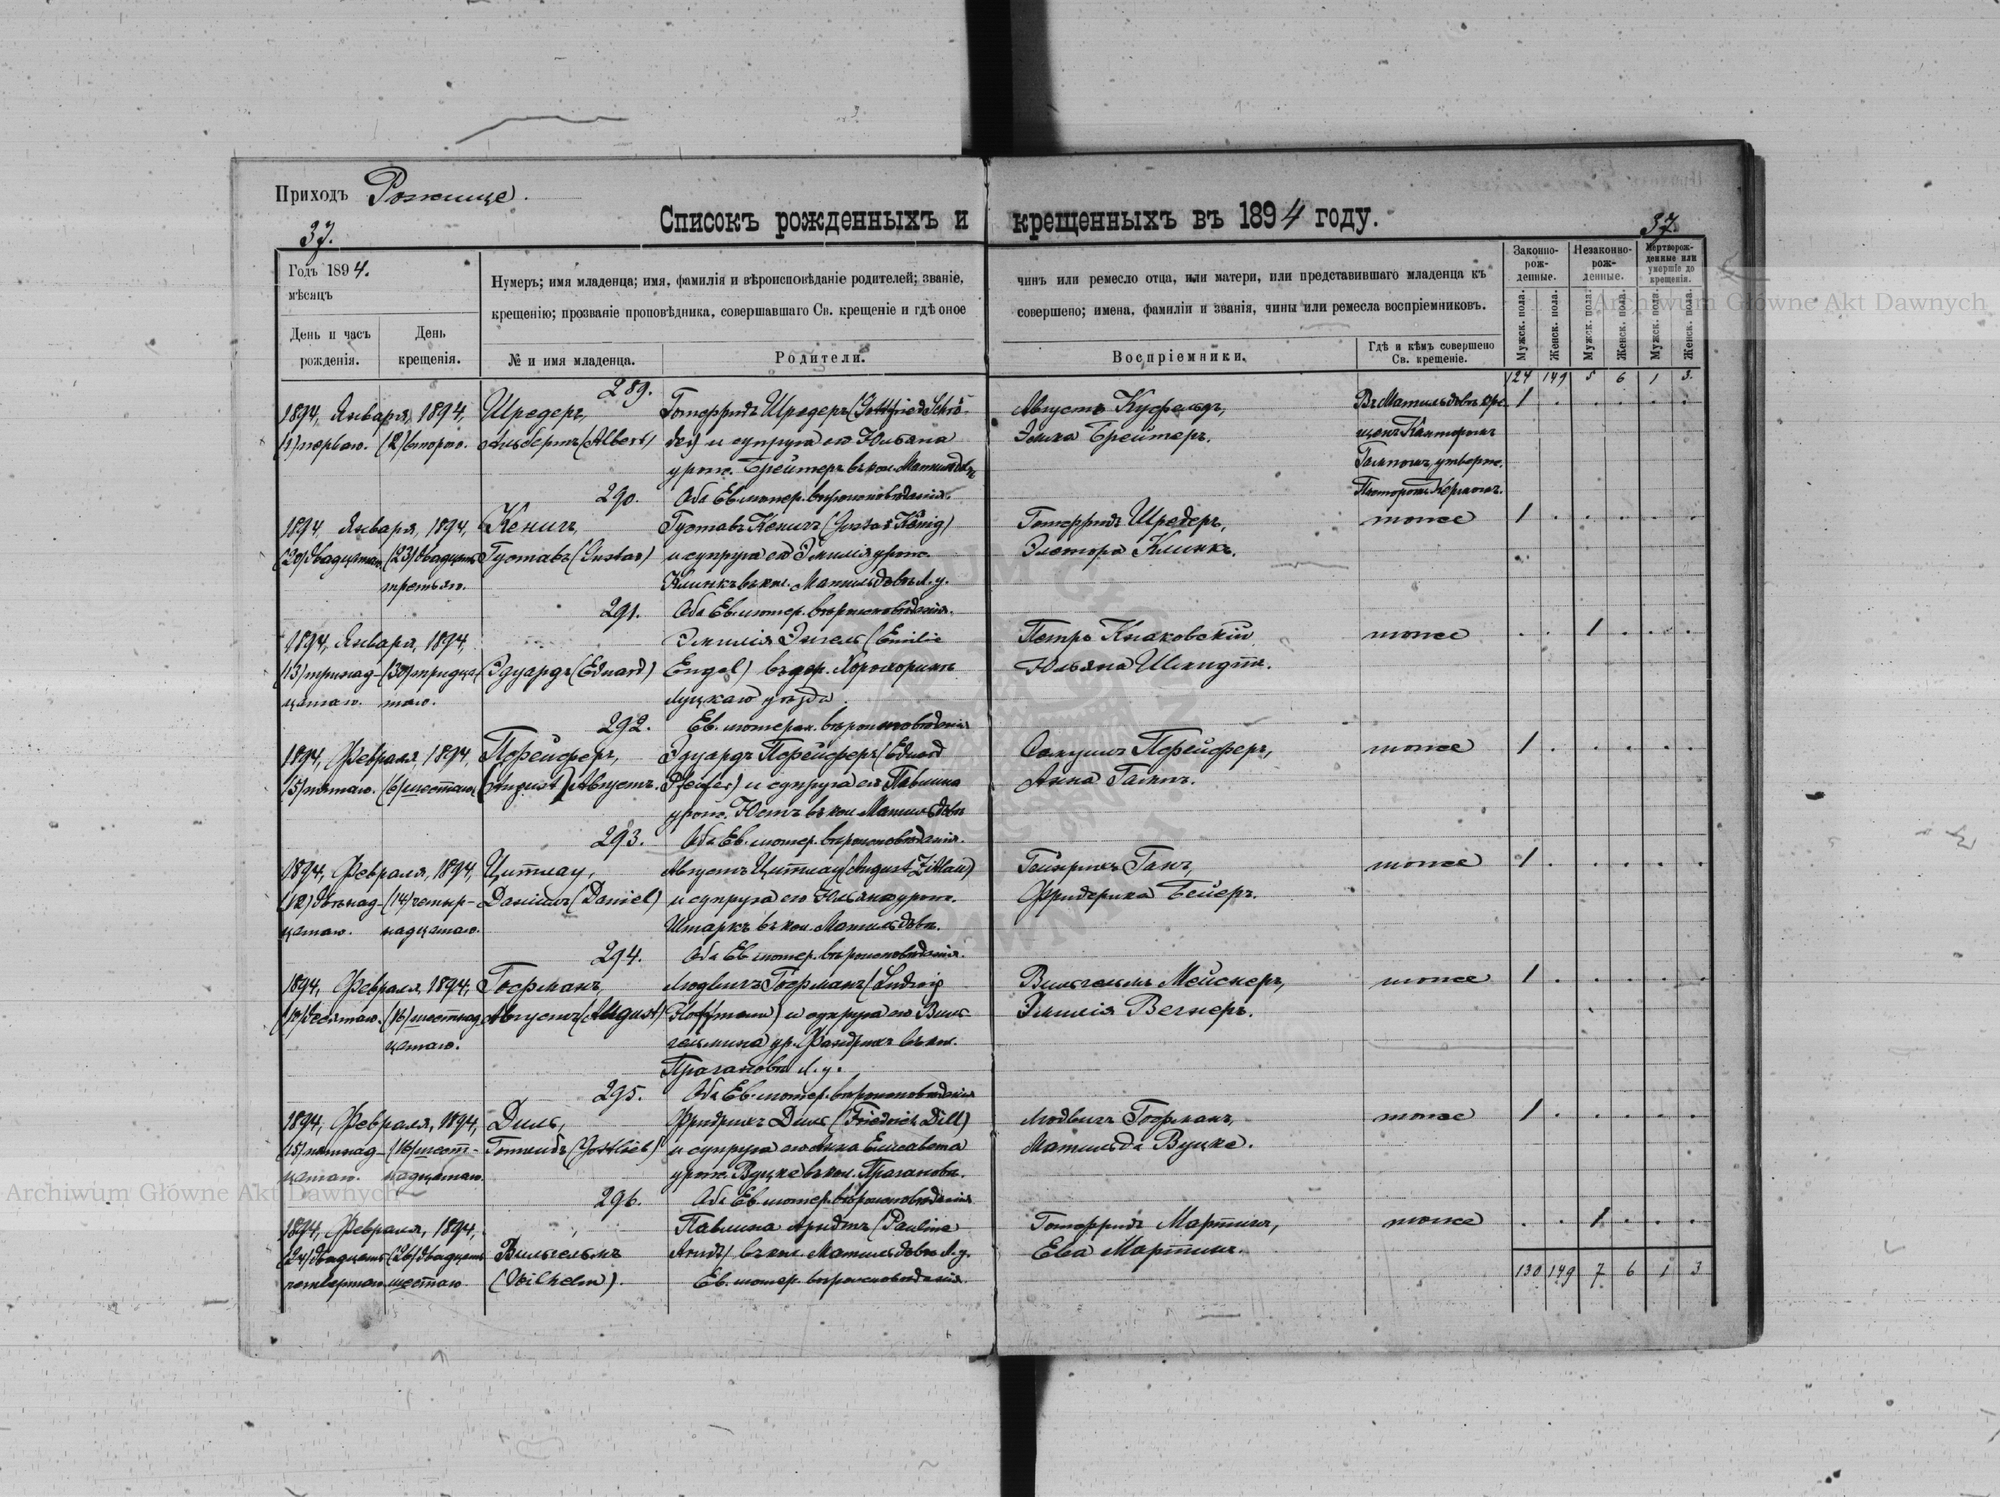 Приходъ Рожище.
37.
Списокъ рожденныхъ и крещенныхъ въ 1894 году.
37.
Годъ 1894.
мѣсяцъ
День и часъ рожденія.
День крещенія.
Нумеръ; имя младенца; имя, фамилія и вѣроисповѣданіе родителей; званіе, чинъ или ремесло отца, или матери, или представившаго младенца къ
крещенію; прозваніе проповѣдника, совершавшаго Св. крещеніе и гдѣ оное совершено; имена, фамиліи и званія, чины или ремесла воспріемниковъ.
№ и имя младенца.
Родители.
Воспріемники.
Гдѣ и кѣмъ совершено
Св. крещеніе.
Законно-рож-денные.
Незаконно-рож-денные.
Мертворож-денные или умершіе до крещенія.
Мужск. пола.
Женск. пола.
Мужск. пола.
Женск. пола.
Мужск. пола.
Женск. пола.
124 149 5 6 1 3.
289.
1894, Января, 1894, Шредеръ, Готфридъ Шредеръ (Gottfried Schrö- Августъ Куфельдъ, Въ Матильдовкѣ кре- 1
(1) перваго. (2) второго. Альбертъ (Albert) der) и супруга его Юльяна Эмма Брейтеръ. щенъ Канторомъ
урож. Брейтеръ въ кол. Матильдовкѣ утвержд.
290. Оба Ев. лютер. вѣроисповѣданія. Пасторомъ Кермомъ.
1894, Января, 1894, Кенигъ, Густавъ Кенигъ (Gustav König) Готфридъ Шредеръ, тоже 1
(20) двадцатаго (23) двадцать Густавъ (Gustav) и супруга его Эмилія урож. Клинкъ.
третьяго. Клинкъ въ кол. Матильдовкѣ Л. у.
291. Оба Ев. лютер. вѣроисповѣданія.
1894, Января, 1894, Эмилія Энгель (Emilie Петръ Кнаковскій тоже 1
(13) тринад- (30) тридца- Эдуардъ (Eduard) Engel) въ дер. Юльяна Шмидтъ.
цатаго. таго. Луцкаго уѣзда.
292. Ев. лютеран. вѣроисповѣданія
1894, Февраля, 1894 Пфейферъ, Эдуардъ Пфейферъ (Eduard Самуилъ Пфейферъ, тоже 1
(5) пятаго. (6) шестаго (August) Августъ. Pfeifer) и супруга его Павлина Анна
урож. Юстъ въ кол. Матильдовкѣ
293. Оба Ев. лютер. вѣроисповѣданія.
1894, Февраля, 1894, Цитлау, Августъ Цитлау (August Zittlau) Гейнрихъ Ганъ, тоже 1
(12) двѣнад- (14) четыр- Даніилъ (Daniel) и супруга его Юльяна урож. Фридерика Бейеръ.
цатаго. надцатаго. Штаркъ въ кол. Матильдовкѣ.
294. Оба Ев. лютер. вѣроисповѣданія.
1894, Февраля, 1894, Гофманъ, Людвигъ Гофманъ (Ludwig Вильгельмъ Мейснеръ, тоже 1
(10) десятаго. (16) шестнад- Августъ (August) Hoffmann) и супруга его Виль- Эмилія Вегнеръ.
цатаго. гельмина ур. въ кол.
Л. у.
295. Оба Ев. лютер. вѣроисповѣданія
1894, Февраля, 1894, Диль, Фридрихъ Диль (Friedrich Dill) Людвигъ Гофманъ, тоже 1
(15) пятнад- (16) шест- Готлибъ (Gottlieb) и супруга его Анна Елисавета Матильда Вуцке.
цатаго. надцатаго. урож. Вуцке въ кол.
296. Оба Ев. лютер. вѣроисповѣданія
1894, Февраля, 1894, Павлина Арндтъ (Pauline Готфридъ Мартинъ, тоже 1
(24) двадцать (26) двадцать Вильгельмъ Arndt) въ кол. Матильдовкѣ Л. у. Ева Мартинъ.
четвертаго шестаго (Wilhelm). Ев. лютер. вѣроисповѣданія.
130 149 7 6 1 3
Archiwum Główne Akt Dawnych
Archiwum Główne Akt Dawnych